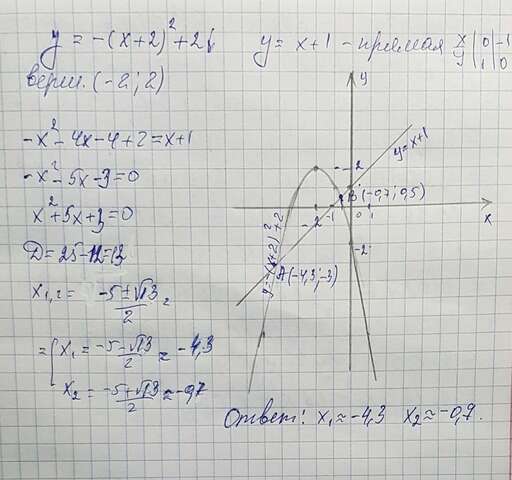 y = -(x+2)² + 2↓
y = x+1 - прямая x | 0 | -1
y | 1 | 0
верш. (-2; 2)
-x² - 4x - 4 + 2 = x+1
-x² - 5x - 3 = 0
x² + 5x + 3 = 0
D = 25 - 12 = 13
x₁,₂ = (-5 ± √13)/2 =
= { x₁ = (-5 - √13)/2 ≈ -4,3
x₂ = (-5 + √13)/2 ≈ -0,7
y
2
y = x+1
B (-0,7; 0,5)
-2 -1 0 1
x
-2
y = -(x+2)² + 2
A (-4,3; -3)
Ответ: x₁ ≈ -4,3 x₂ ≈ -0,7.